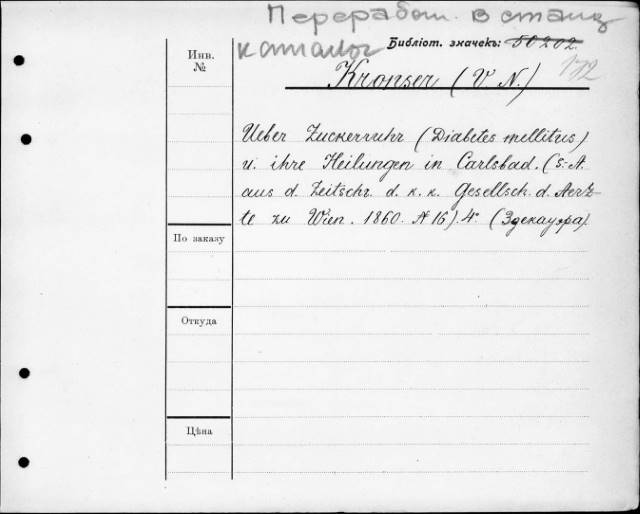 Переработ. в станд
каталог
Библіот. значекъ: 50202
172
Инв.
№
Kronser (V. N.)
Ueber Zuckerruhr (Diabetes mellitus)
u. ihre Heilungen in Carlsbad. (S.-A.
aus d. Zeitschr. d. k. k. Gesellsch. d. Aerz-
te zu Wien. 1860. № 16). 4°
По заказу
Откуда
Цѣна